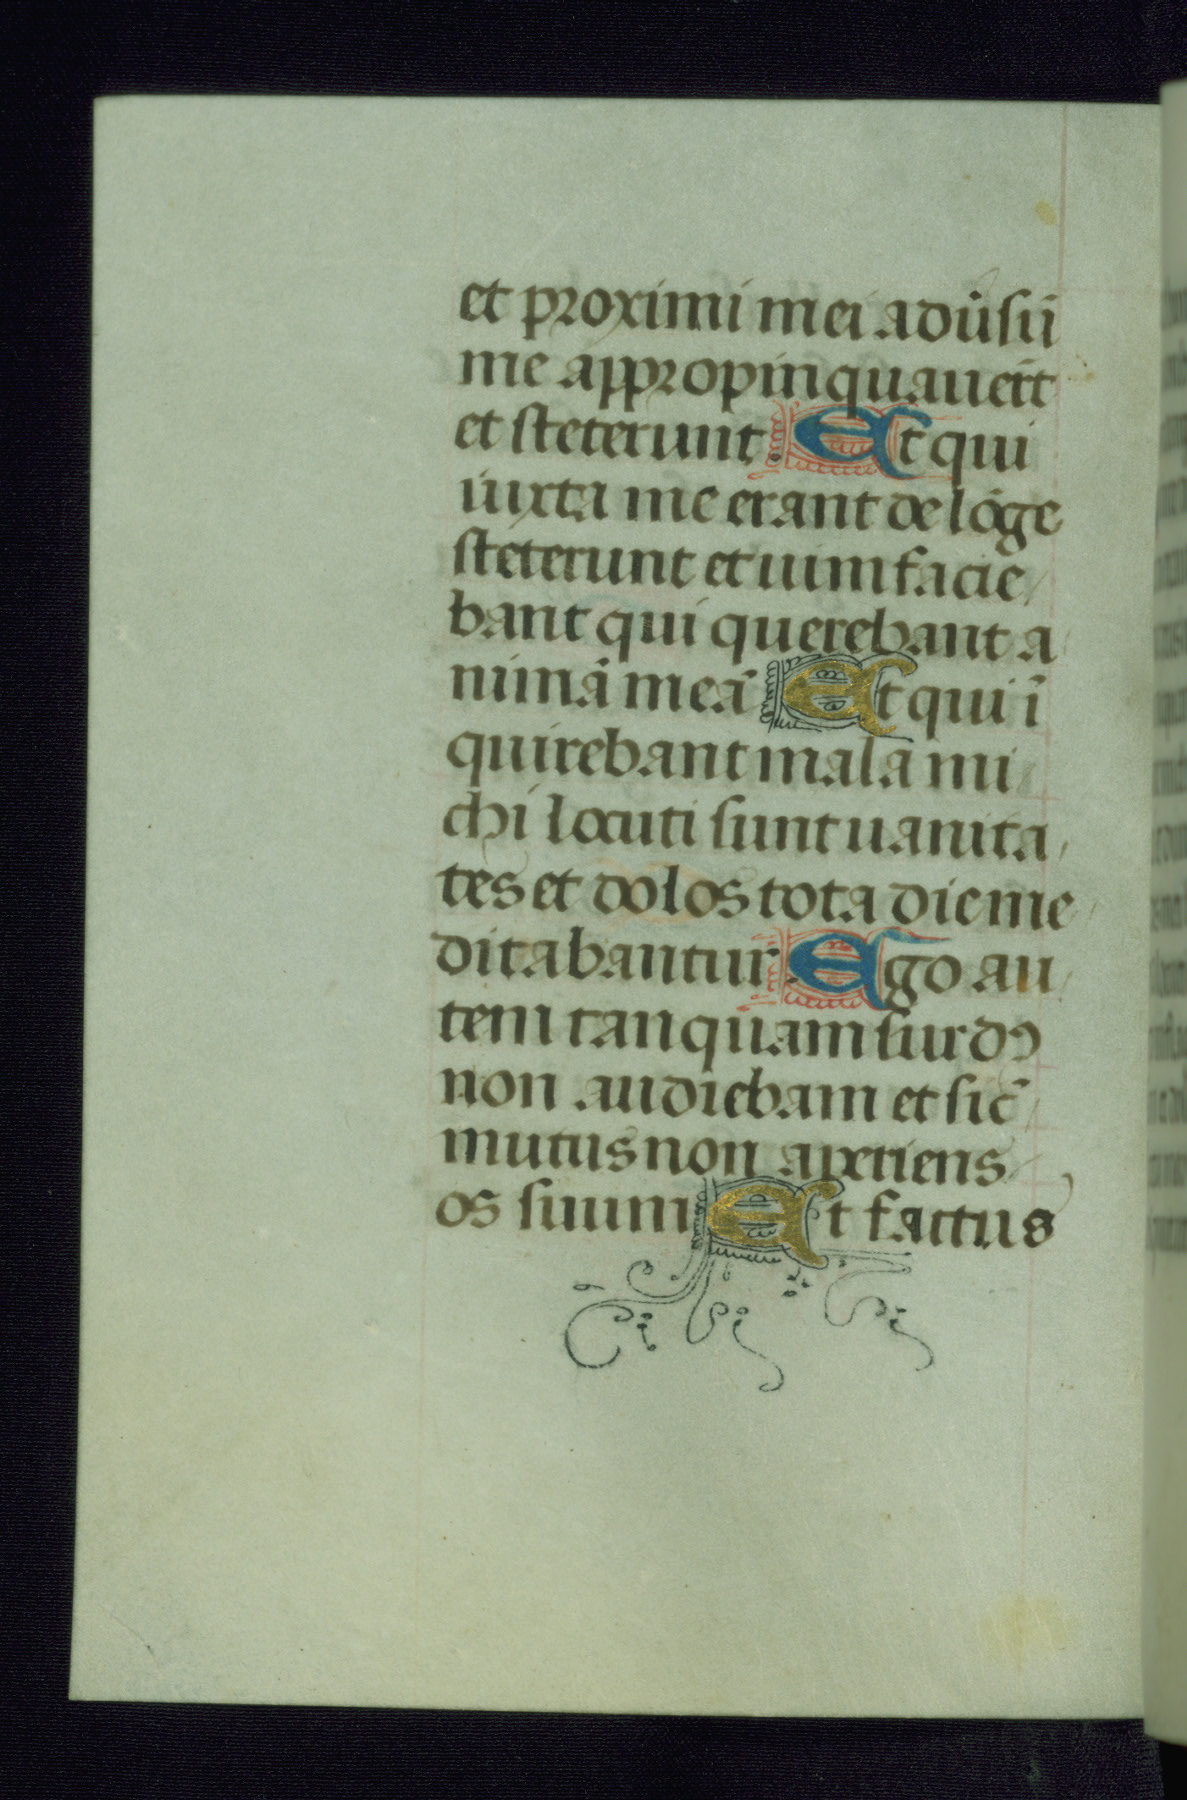 et proximi mei adũsũ
me appropinquauert̃
et steterunt. Et qui
iuxta me erant de lõge
steterunt et uim facie
bant qui querebant a
nimã meã Et qui ĩ
quirebant mala mi
chi locuti sunt uanita
tes et dolos tota die me
ditabantur. Ego au
tem tanquam surdꝰ
non audiebam et sic̃
mutus non aperiens
os suum Et factus